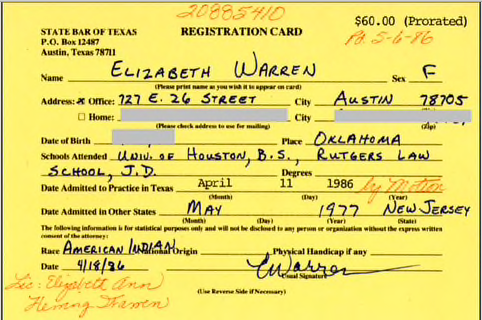 20885410
$60.00 (Prorated)
STATE BAR OF TEXAS
REGISTRATION CARD
P.O. Box 12487
Austin, Texas 78711
Pd. 5-6-86
Name ELIZABETH WARREN Sex F
(Please print name as you wish it to appear on card)
Address: ☒ Office: 727 E. 26 STREET City AUSTIN 78705
☐ Home: City
(Please check address to use for mailing) (Zip)
Date of Birth Place OKLAHOMA
Schools Attended UNIV. OF HOUSTON, B.S., RUTGERS LAW
SCHOOL, J.D. Degrees
Date Admitted to Practice in Texas April 11 1986 by Motion
(Month) (Day) (Year)
Date Admitted in Other States MAY 1977 NEW JERSEY
(Month) (Day) (Year) (State)
The following information is for statistical purposes only and will not be disclosed to any person or organization without the express written
consent of the attorney:
Race AMERICAN INDIAN National Origin Physical Handicap if any
Date 4/18/86 EWarren
Usual Signature
Lic: Elizabeth Ann
(Use Reverse Side if Necessary)